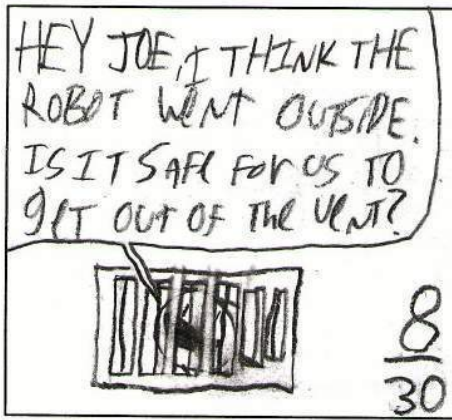 HEY JOE, I THINK THE
ROBOT WENT OUTSIDE.
IS IT SAFE FOR US TO
gET OUT OF The VENT?
8
30